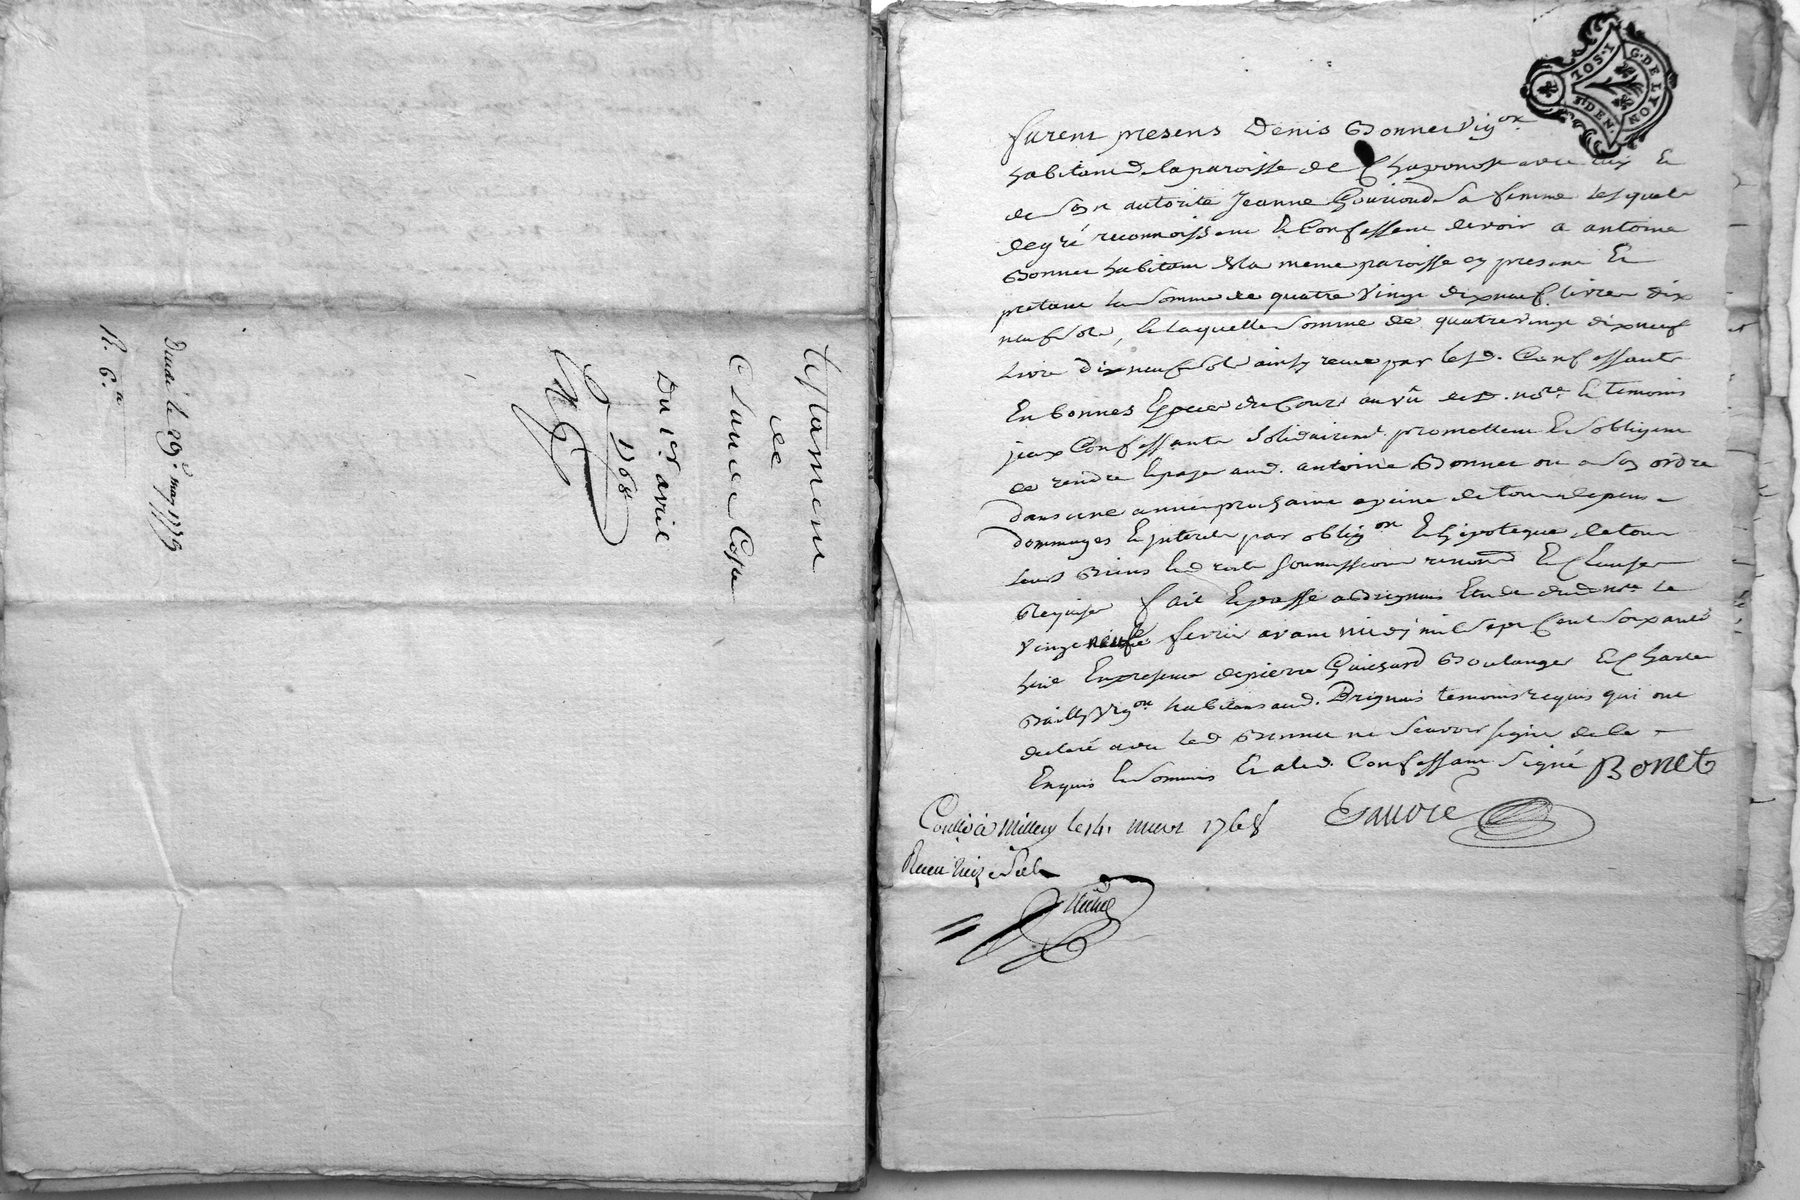 testament
de
Claude Coste
Du 1er avril
1768
Ducdé le 29e may 1773
R. 6.a
G. DE LYON
I. SOL
8. DEN.
furent presens Denis Bonnet Vigon
habitant de la paroisse de Chaponost avec luy Et
de son autorité Jeanne Gouttoud sa femme lesquels
de gré reconnoissent Et Confessent devoir a antoine
Bonnet habitant de la meme paroisse cy present Et
pretant la somme de quatre vingt dix neuf livres dix
neuf sols, la laquelle somme de quatre vingt dix neuf
livres dix neuf sols ainsy receue par lesd. Confessants
En bonnes Especes du Cours au vû dud. nore. Et temoins
yceux Confessants solidairemt. promettent Et s'obligent
de rendre Et payer aud. antoine Bonnet ou a son ordre
dans une année prochaine a peine de tous depens
dommages Et interets par obligon Et hipoteque de tous
leurs Biens Led. soumissions renond Et Clauses
Requises fait Et passé a Brignais Etude dud. nore. Le
Vingt neuf fevrier avant midy mil sept Cent soixante
huit En presence de pierre Guinard Boulanger Et Charles
Bailly Vigon habitans aud. Brignais temoins requis qui ont
declaré avec led Bonnet ne sçavoir signer de ce
Enquis Et sommés Et aled. Confessant signé Bonet
Contlé à Millery le 14. mars 1768
Receu treize sols